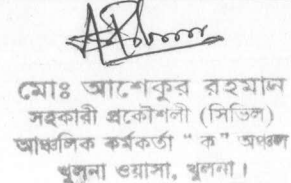 মোঃ আশেকুর রহমান
সহকারী প্রকৌশলী (সিভিল)
আঞ্চলিক কর্মকর্তা "ক" অঞ্চল
খুলনা ওয়াসা, খুলনা।